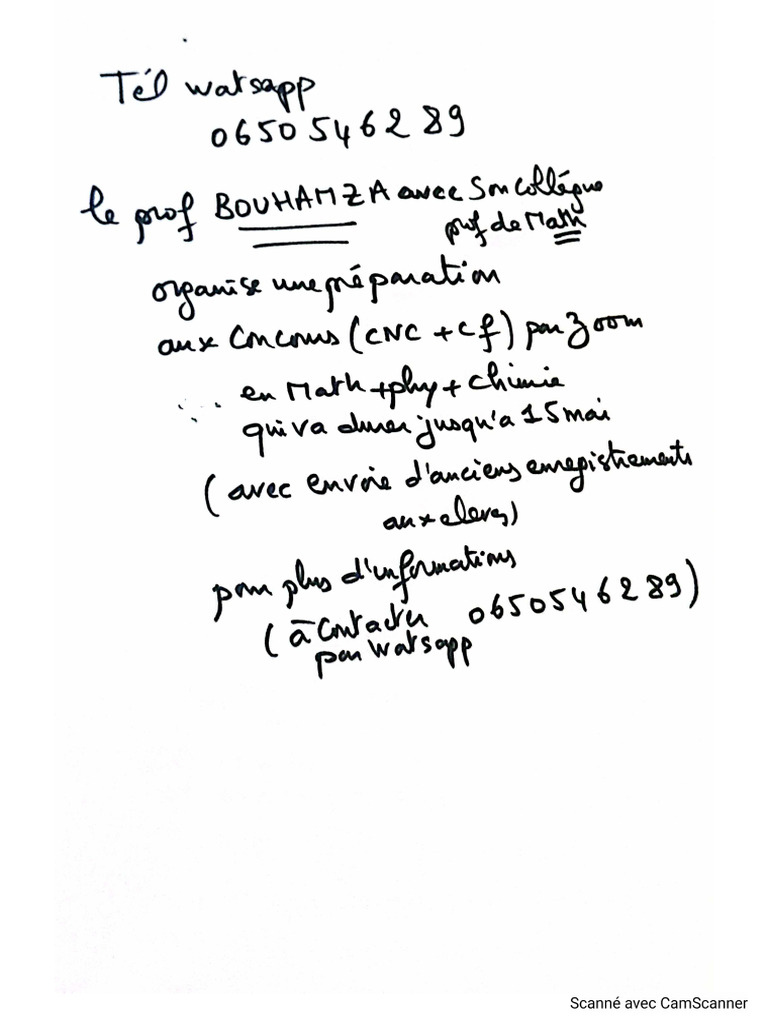 Tél watsapp
0650546289
le prof BOUHAMZA avec son collégue
prof de Math
organise une préparation
aux concours (CNC + cf) par zoom
en Math + phy + chimie
qui va durer jusqu'a 15 mai
(avec envoie d'anciens enregistrements
aux eleves)
pour plus d'informations
(à contacter 0650546289)
par watsapp
Scanné avec CamScanner